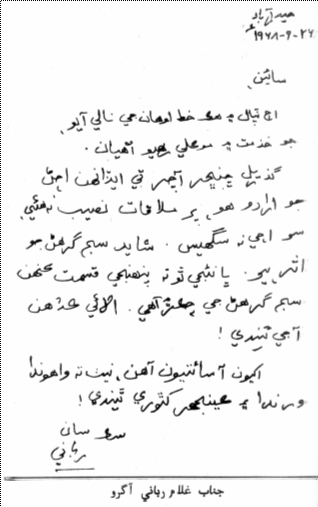 حيدرآباد
۲۶-۹-۱۹۶۸ع
سائين،
اڄ ٽپال ۾ هڪ خط اوهان جي نالي آيو،
جو خدمت ۾ موڪلي رهيو آهيان.
گذريل ڇنڇر آچر تي ايڏانهن اچڻ
جو ارادو هو، پر ملاقات نصيب نه هئي،
سو اچي نه سگهيس. شايد سج گرهڻ جو
اثر هو. پانئجي ٿو ته پنهنجي قسمت
سج گرهڻ جي آهي. الائي ڪڏهن
آجي ٿيندي!
اکيون آسائتيون آهن، نيٺ ته واهوندا
ورندا ۽ ڪٿوري ٿيندي!
سڪ سان
رباني
جناب غلام رباني آگرو